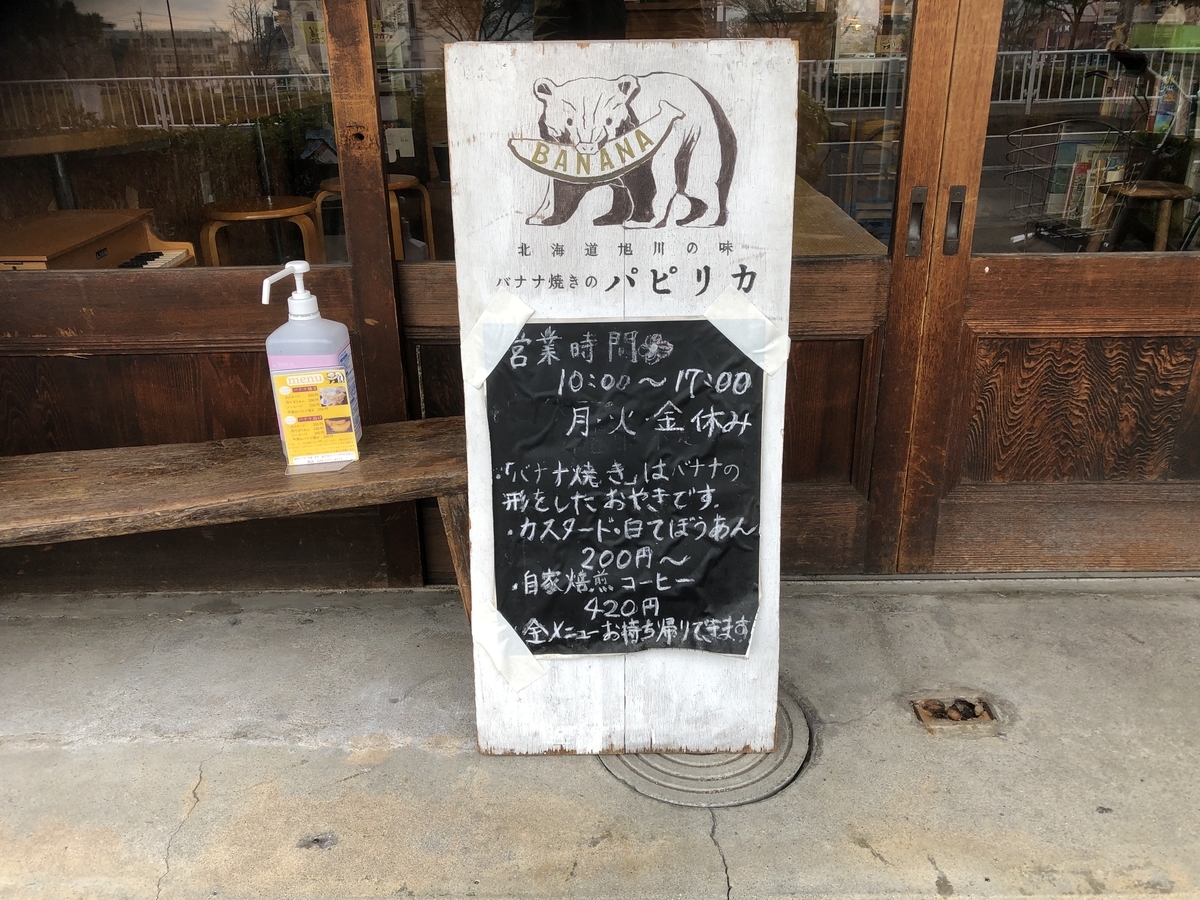 BANANA
北海道旭川の味
バナナ焼きの パピリカ
営業時間
10:00〜17:00
月・火・金休み
・「バナナ焼き」はバナナの
形をしたおやきです。
・カスタード・白てぼうあん
200円〜
・自家焙煎コーヒー
420円
・全メニューお持ち帰りできます
menu